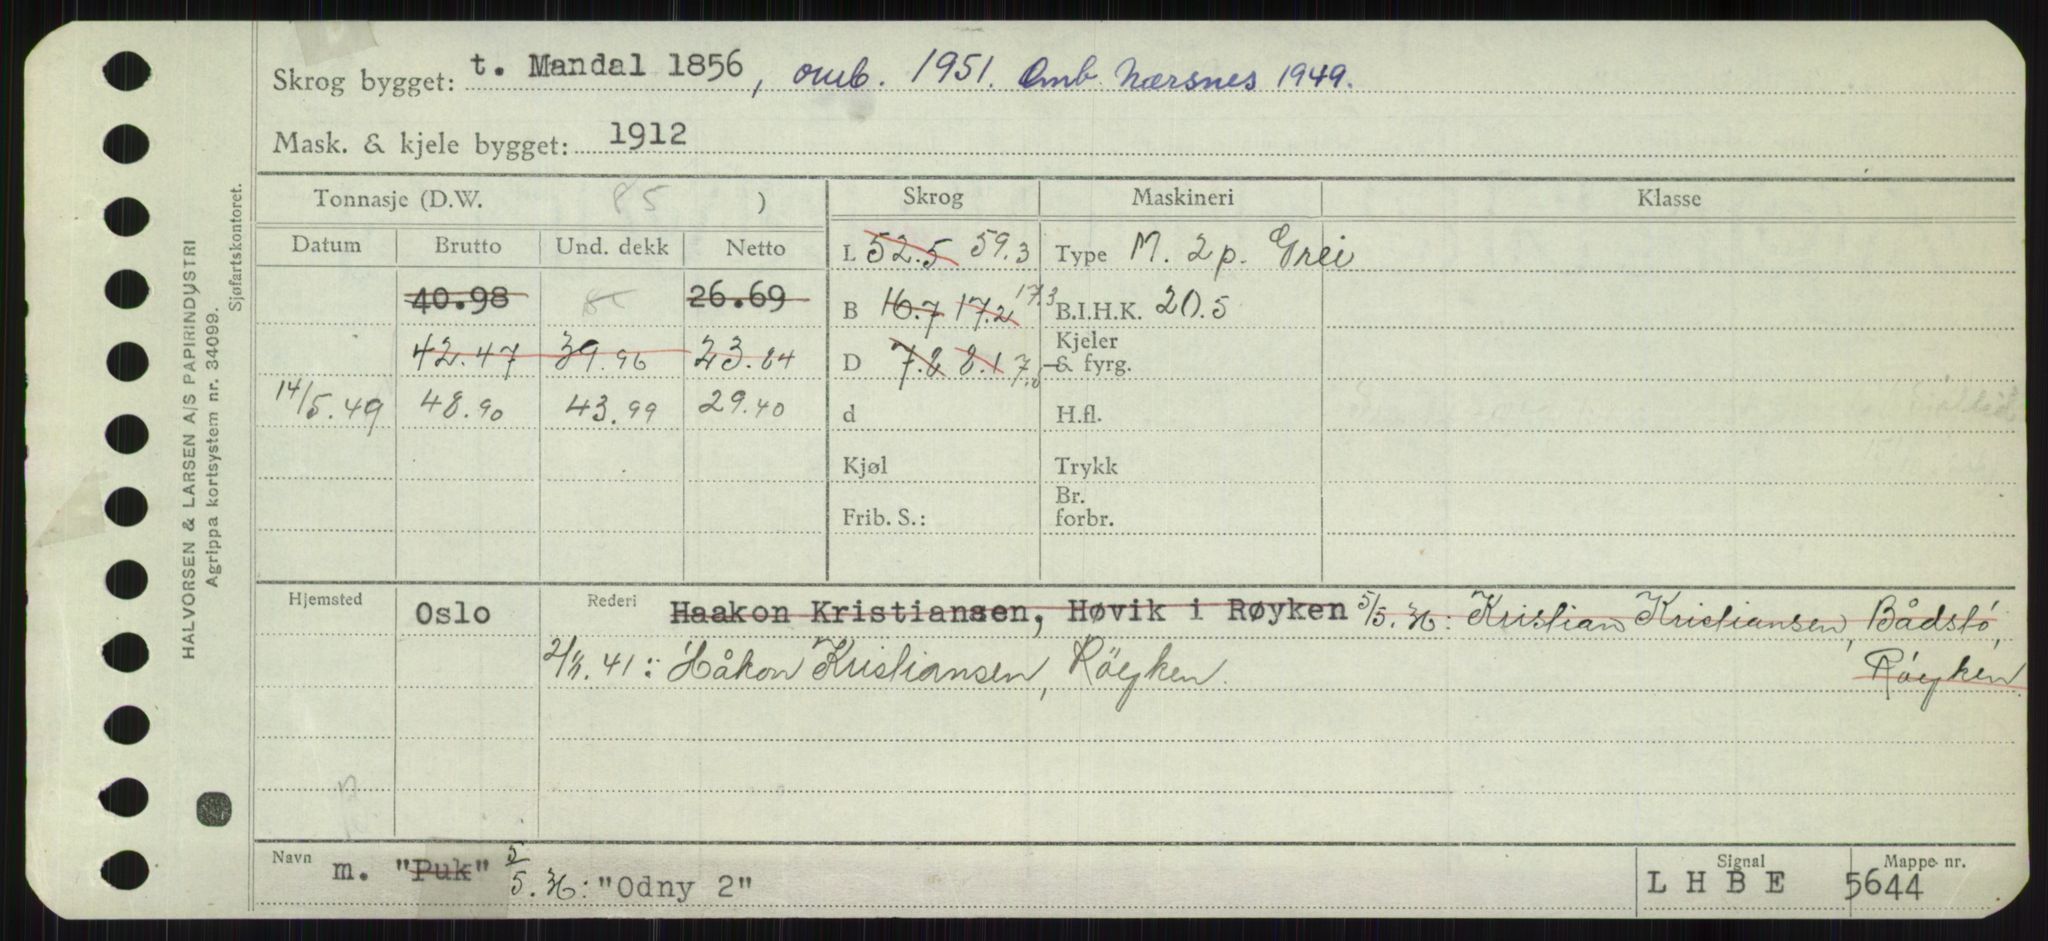 Skrog bygget: t. Mandal 1856, omb. 1951. Omb. Nærsnes 1949.
Mask. & kjele bygget: 1912
Tonnasje (D.W. 85 )
Skrog Maskineri Klasse
Datum Brutto Und. dekk Netto
40.98 26.69
42.47 39.96 23.84
14/5.49 48.90 43.99 29.40
L 52.5 59.3
B 16.7 17.2 17.3
D 7.8 8.1
d
Kjøl
Frib. S.:
Type M. 2 p. Grei
B.I.H.K. 20.5
Kjeler
& fyrg.
H.fl.
Trykk
Br.
forbr.
Hjemsted Oslo Rederi Haakon Kristiansen, Høvik i Røyken 5/5.36: Kristian Kristiansen, Bådstö,
Röyken.
41: Håkon Kristiansen, Röyken.
Navn m. "Puk" 5/5.36: "Odny 2"
Signal L H B E
Mappe nr. 5644
HALVORSEN & LARSEN A/S PAPIRINDUSTRI
Agrippa kortsystem nr. 34099.
Sjøfartskontoret.